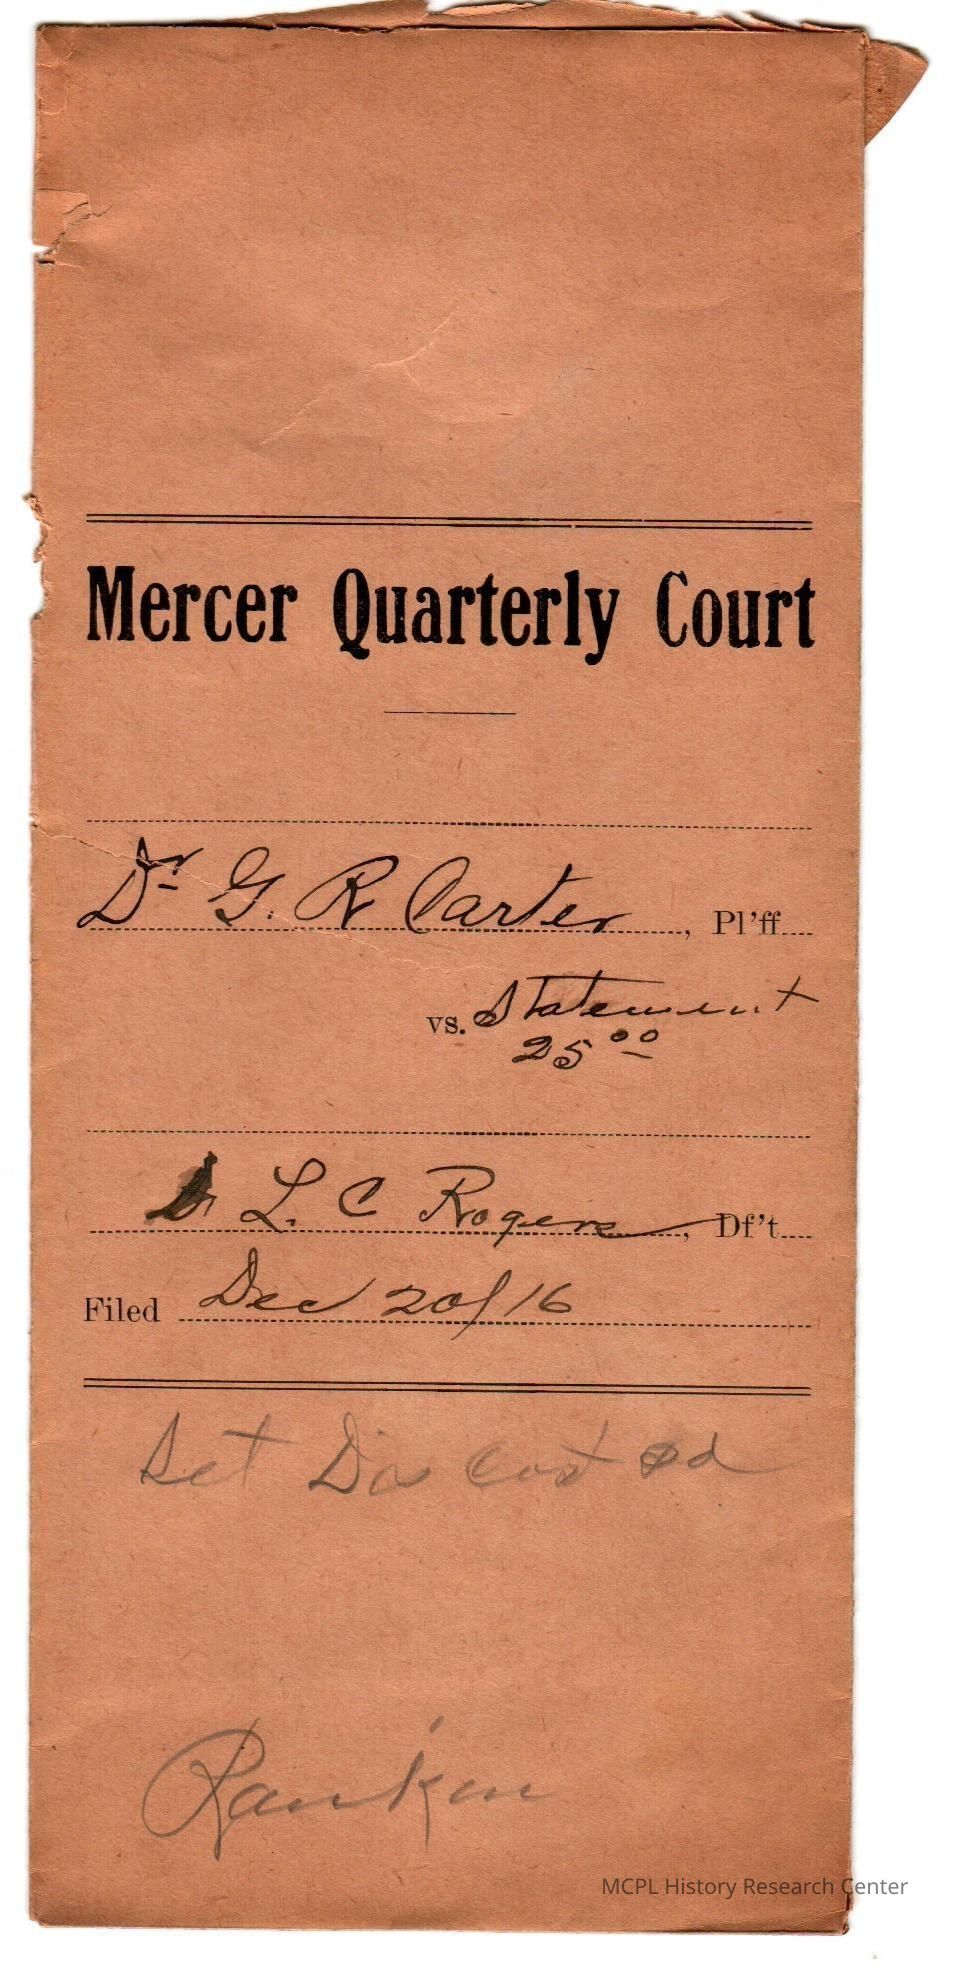 Mercer Quarterly Court
Dr G. R Carter, Pl'ff
vs. Statement
25 00
L. C Rogers, Df't
Filed Dec 20/16
Set Dis Cost pd
Rankin
MCPL History Research Center